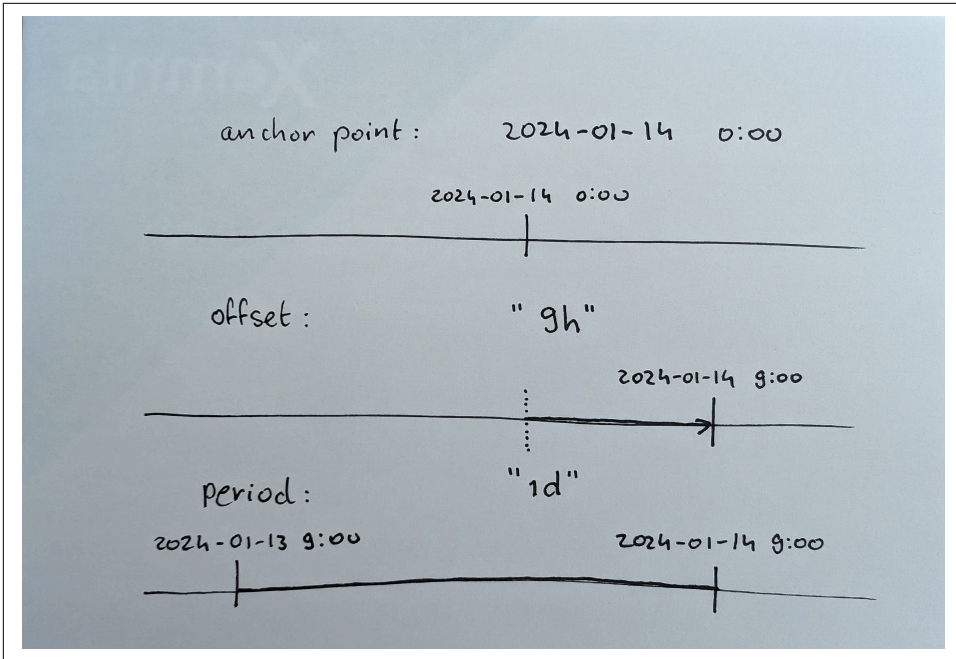 Xomnia
anchor point: 2024-01-14 0:00
2024-01-14 0:00
offset: "9h"
2024-01-14 9:00
period: "1d"
2024-01-13 9:00 2024-01-14 9:00